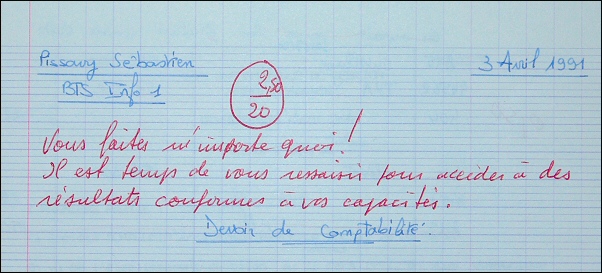 Pissavy Sébastien
3 Avril 1991
BTS Info 1
2,50
20
Vous faites n'importe quoi !
Il est temps de vous ressaisir pour accéder à des
résultats conformes à vos capacités.
Devoir de Comptabilité.